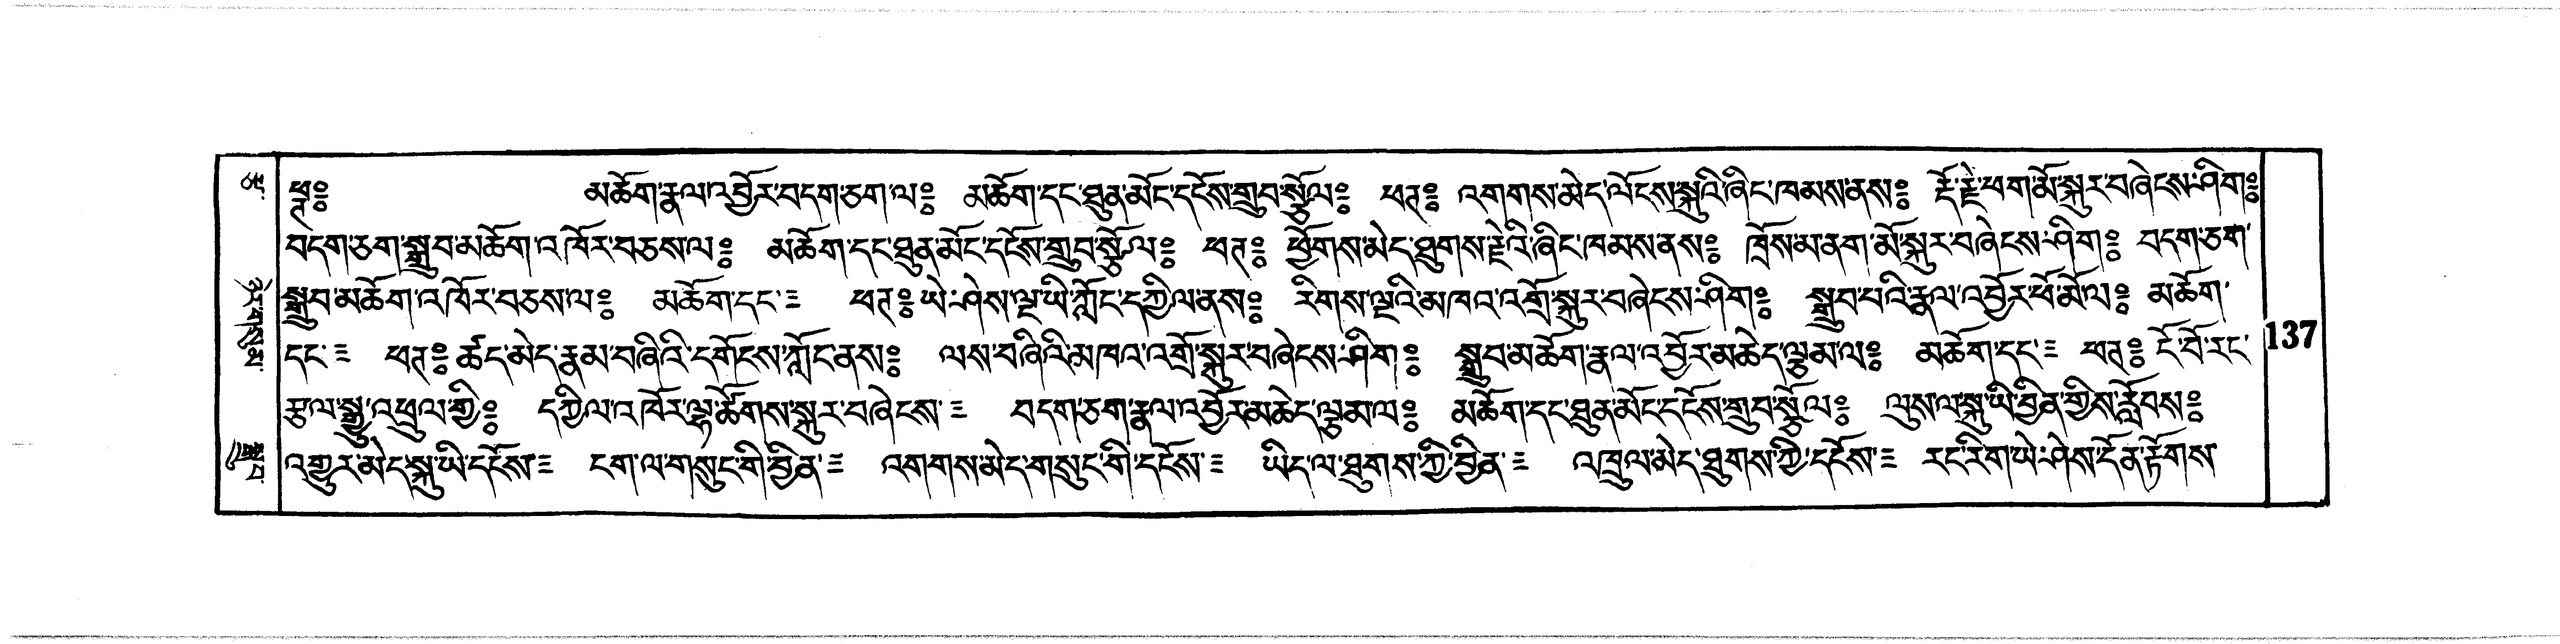 ཕཊ༔ མཆོག་རྣལ་འབྱོར་བདག་ཅག་ལ༔ མཆོག་དང་ཐུན་མོང་དངོས་གྲུབ་སྩོལ༔ ཕཊ༔ འགགས་མེད་ལོངས་སྐུའི་ཞིང་ཁམས་ནས༔ རྡོ་རྗེ་ཕག་མོ་སྐུར་བཞེངས་ཤིག༔
བདག་ཅག་སྒྲུབ་མཆོག་འཁོར་བཅས་ལ༔ མཆོག་དང་ཐུན་མོང་དངོས་གྲུབ་སྩོལ༔ ཕཊ༔ ཕྱོགས་མེད་ཐུགས་རྗེའི་ཞིང་ཁམས་ནས༔ ཁྲོས་མ་ནག་མོ་སྐུར་བཞེངས་ཤིག༔ བདག་ཅག་
སྒྲུབ་མཆོག་འཁོར་བཅས་ལ༔ མཆོག་དང་༴ ཕཊ༔ ཡེ་ཤེས་ལྔ་ཡི་ཀློང་དཀྱིལ་ནས༔ རིགས་ལྔའི་མཁའ་འགྲོ་སྐུར་བཞེངས་ཤིག༔ སྒྲུབ་པའི་རྣལ་འབྱོར་ཕོ་མོ་ལ༔ མཆོག་
དང་༴ ཕཊ༔ ཚད་མེད་རྣམ་བཞིའི་དགོངས་ཀློང་ནས༔ ལས་བཞིའི་མཁའ་འགྲོ་སྐུར་བཞེངས་ཤིག༔ སྒྲུབ་མཆོག་རྣལ་འབྱོར་མཆེད་ལྕམ་ལ༔ མཆོག་དང་༴ ཕཊ༔ ངོ་བོ་རང་
རྩལ་སྒྱུ་འཕྲུལ་གྱི༔ དཀྱིལ་འཁོར་ལྷ་ཚོགས་སྐུར་བཞེངས་༴ བདག་ཅག་རྣལ་འབྱོར་མཆེད་ལྕམ་ལ༔ མཆོག་དང་ཐུན་མོང་དངོས་གྲུབ་སྩོལ༔ ལུས་ལ་སྐུ་ཡི་བྱིན་གྱིས་རློབས༔
འགྱུར་མེད་སྐུ་ཡི་དངོས་༴ ངག་ལ་གསུང་གི་བྱིན་༴ འགགས་མེད་གསུང་གི་དངོས་༴ ཡིད་ལ་ཐུགས་ཀྱི་བྱིན་༴ འཁྲུལ་མེད་ཐུགས་ཀྱི་དངོས་༴ རང་རིག་ཡེ་ཤེས་དོན་རྟོགས་
137